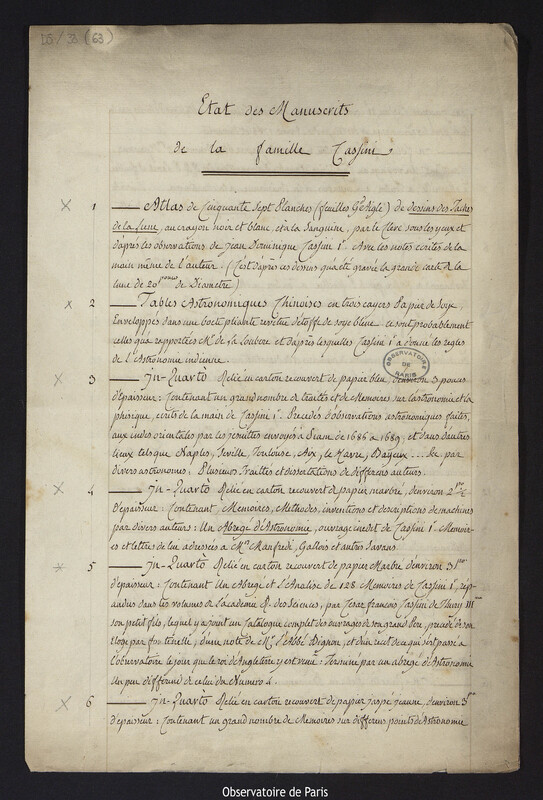 D5/33 (63)
Etat des Manuscrits
de la famille Cassini
1 Atlas de Cinquante Sept Planches (feuilles Gd Aigle) de dessins des Taches
de la Lune, au crayon noir et blanc, et à la Sanguine, par le Clerc sous les yeux et
d'après les observations de Jean Dominique Cassini 1er. Avec les notes ecrites de la
main même de l'auteur. (C'est d'après ces dessins qu'a été gravée la grande carte de la
lune de 20 pouces de Diametre)
2 Tables Astronomiques Chinoises en trois cayers d'apier de Soye,
Enveloppés dans une boete pliante revetue d'etoffe de soye bleue. ce sont probablement
celles que rapportées Mr. de la Loubere et d'après lesquelles Cassini 1er a donné les regles
de l'Astronomie indienne.
3 Jn-Quarto Relié en carton recouvert de papier bleu, d'environ 3 pouces
d'Epaisseur: Contenant un grand nombre de traités et de Memoires sur l'astronomie et la
phisique, ecrits de la main de Cassini 1er. Precedés d'observations astronomiques faites,
aux indes orientales par les jesuittes envoyés a Siam de 1686 a 1689, et dans d'autres
lieux tels que Naples, Seville, Toulouse, Aix, le Havre, Bayeux ... &c par
divers astronomes. Plusieurs Traittés et dissertations de differens auteurs.
4 Jn-Quarto Relié en carton recouvert de papier marbré, d'environ 2
D'Epaisseur: Contenant, Memoires, Methodes, inventions et descriptions de machines
par divers auteurs: Un Abregé d'Astronomie, ouvrage inedit de Cassini 1er. Memoi-
res et lettres de lui adressés a Mrs Manfredi, Gallois et autres Savans.
5 Jn-Quarto Relié en carton recouvert de papier Marbré d'environ 3
d'epaisseur: Contenant un Abregé et l'Analise de 128 Memoires de Cassini 1er, rep-
andus dans les volumes de l'academie R. des Sciences, par Cesar françois Cassini de Thury IIIme
son petit fils, lequel y a joint un Catalogue complet des ouvrages de son grand Pere, precedé de son
Eloge par fontenelle, d'une note de Mr. l'Abbé Bignon, et d'un recit de ce qui s'est passé à
l'observatoire le jour que le roi d'Angleterre y est venu: Terminé par un abregé d'Astronomie
Un peu different de celui du Numero 4.
6 Jn-Quarto Relié en carton recouvert de papier jaspé jaune, d'environ 3
d'epaisseur: Contenant un grand nombre de Memoires sur differens points d'Astronomie
OBSERVATOIRE DE PARIS
Observatoire de Paris